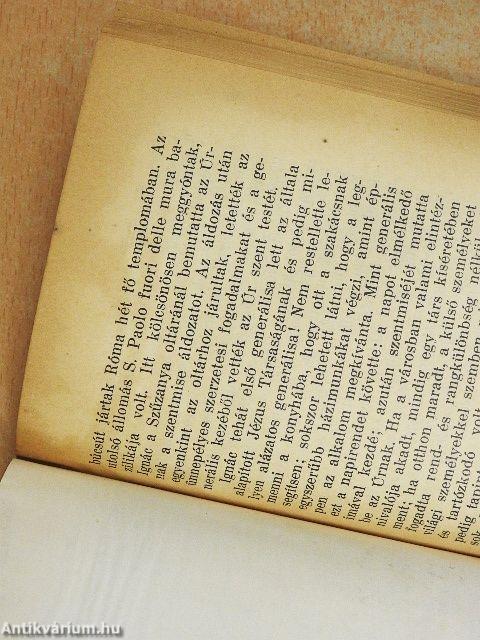 búcsút jártak Róma hét fő templomában. Az
utolsó állomás S. Paolo fuori delle mura ba-
zilikája volt. Itt kölcsönösen meggyóntak,
Ignác a Szűzanya oltáránál bemutatta az Úr-
nak a szentmise áldozatot. Az áldozás után
egyenkint az oltárhoz járultak, letették az
ünnepélyes szerzetesi fogadalmakat és a ge-
nerális kezéből vették az Úr szent testét.
Ignác tehát első generálisa lett az általa
alapított Jézus Társaságának és pedig mi-
lyen alázatos generálisa! Nem restellette le-
menni a konyhába, hogy ott a szakácsnak
segítsen; sokszor lehetett látni, hogy a leg-
egyszerűbb házimunkákat végzi, amint ép-
pen az alkalom megkívánta. Mint generális
ezt a napirendet követte: a napot elmélkedő
imával kezdé; azután szentmiséjét mutatta
be az Úrnak. Ha a városban valami elintéz-
nivalója akadt, mindig egy társ kíséretében
ment; ha otthon maradt, a külső személyeket
fogadta rend- és rangkülönbség nélkül
világi személyekkel szemben
és tartózkodó volt
pedig
sok
Antikvárium.hu